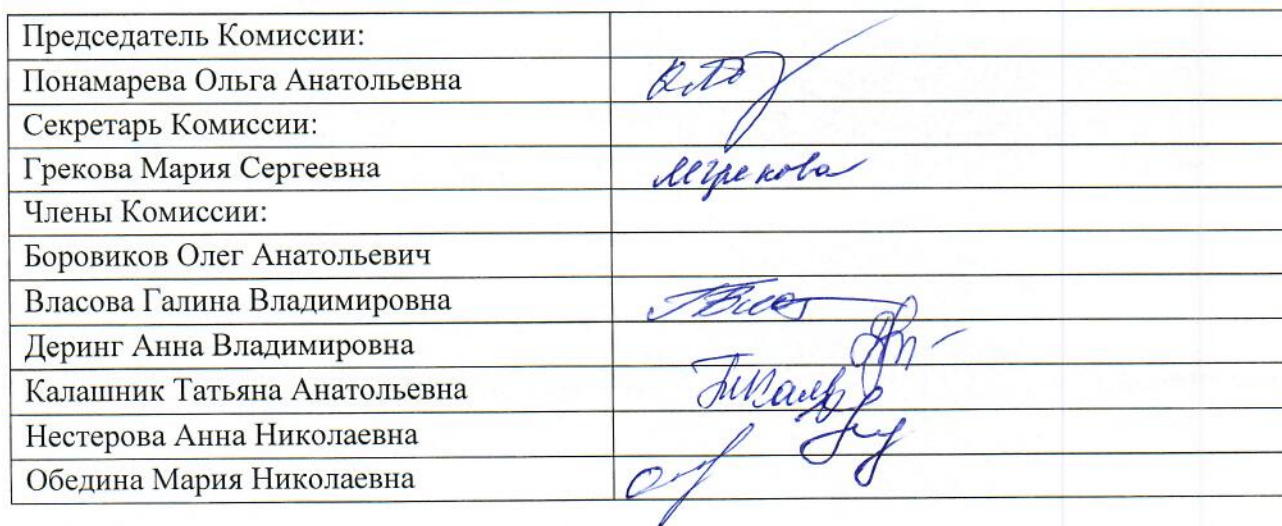 Председатель Комиссии:
Понамарева Ольга Анатольевна
Секретарь Комиссии:
Грекова Мария Сергеевна МГрекова
Члены Комиссии:
Боровиков Олег Анатольевич
Власова Галина Владимировна
Деринг Анна Владимировна
Калашник Татьяна Анатольевна
Нестерова Анна Николаевна
Обедина Мария Николаевна